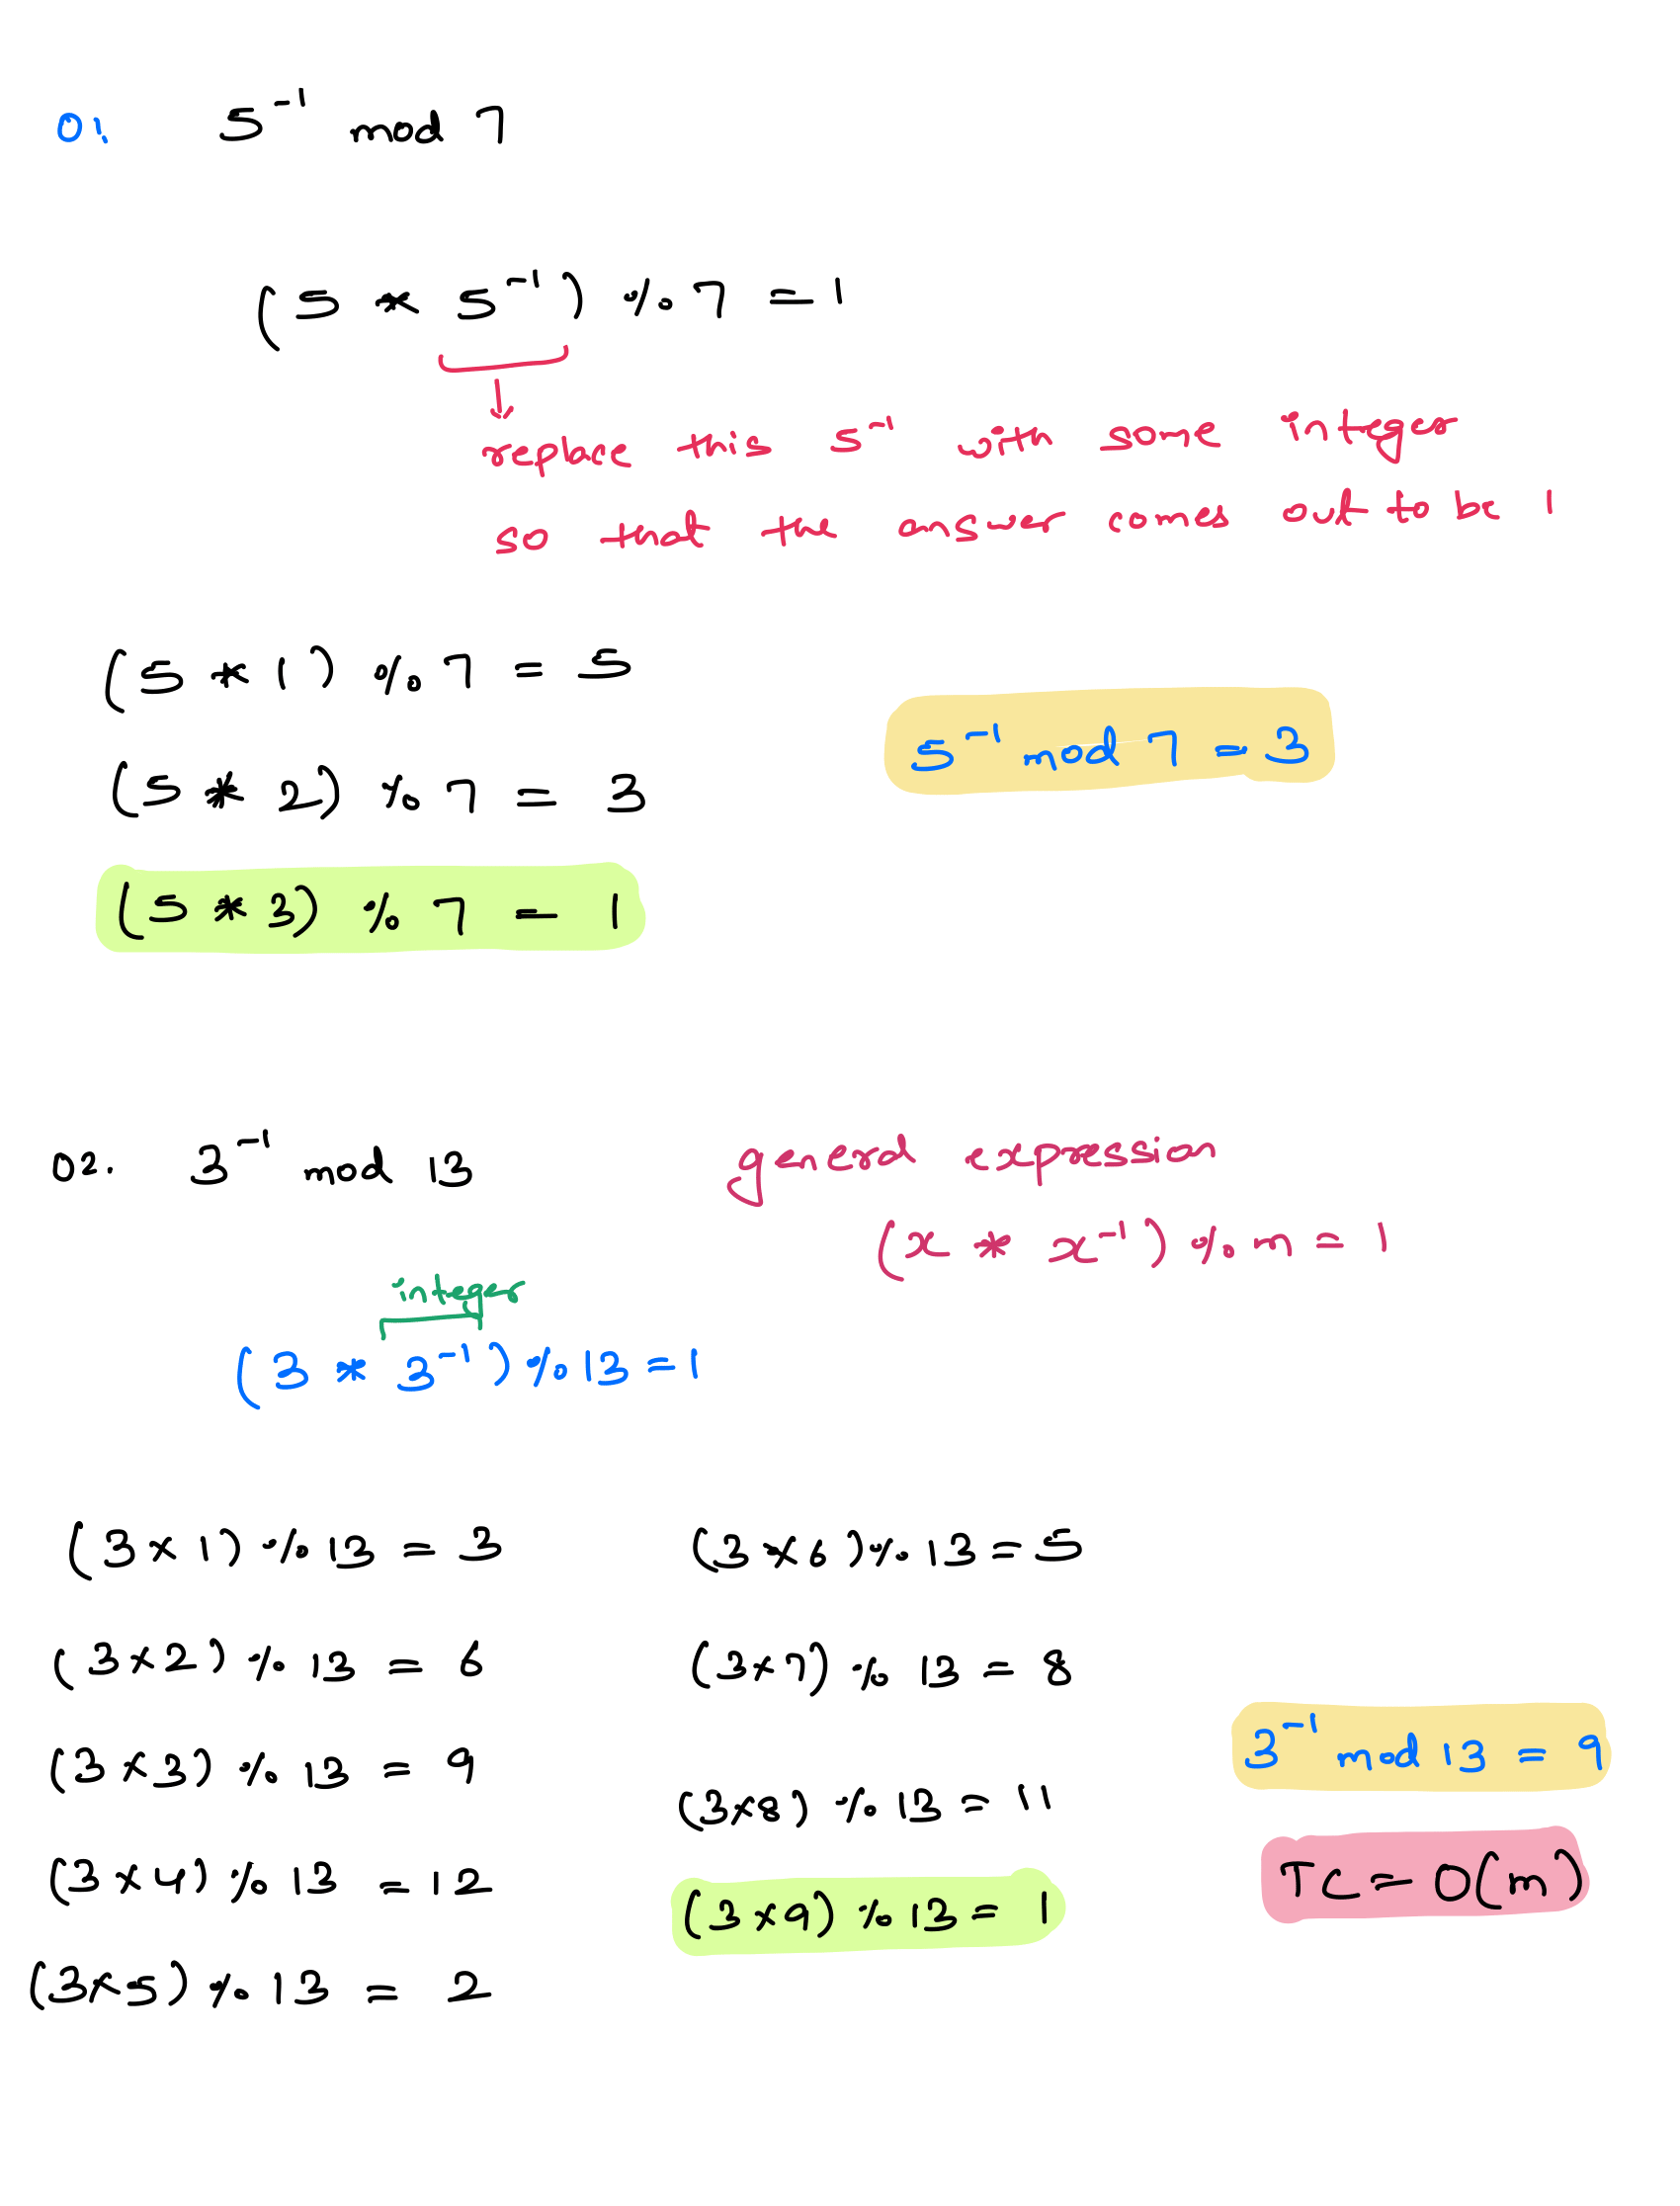 01. 5⁻¹ mod 7
(5 * 5⁻¹) % 7 = 1
replace this 5⁻¹ with some integer
so that the answer comes out to be 1
(5 * 1) % 7 = 5
(5 * 2) % 7 = 3
5⁻¹ mod 7 = 3
(5 * 3) % 7 = 1
02. 3⁻¹ mod 13
general expression
(x * x⁻¹) % m = 1
integer
(3 * 3⁻¹) % 13 = 1
(3 × 1) % 13 = 3
(3 × 2) % 13 = 6
(3 × 3) % 13 = 9
(3 × 4) % 13 = 12
(3 × 5) % 13 = 2
(3 × 6) % 13 = 5
(3 × 7) % 13 = 8
(3 × 8) % 13 = 11
(3 × 9) % 13 = 1
3⁻¹ mod 13 = 9
TC = O(m)